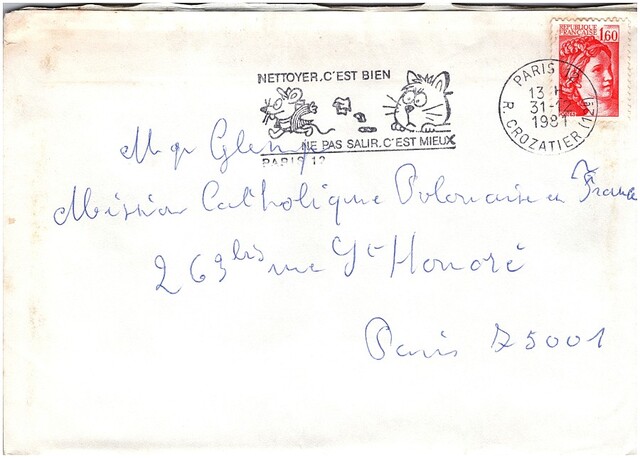 REPUBLIQUE FRANÇAISE 1,60
NETTOYER. C'EST BIEN
NE PAS SALIR. C'EST MIEUX
PARIS 12
PARIS 12
13 H
31-12
1981
R. CROZATIER (12E)
Mgr Glemp
Mission Catholique Polonaise en France
263 bis rue St Honoré
Paris 75001